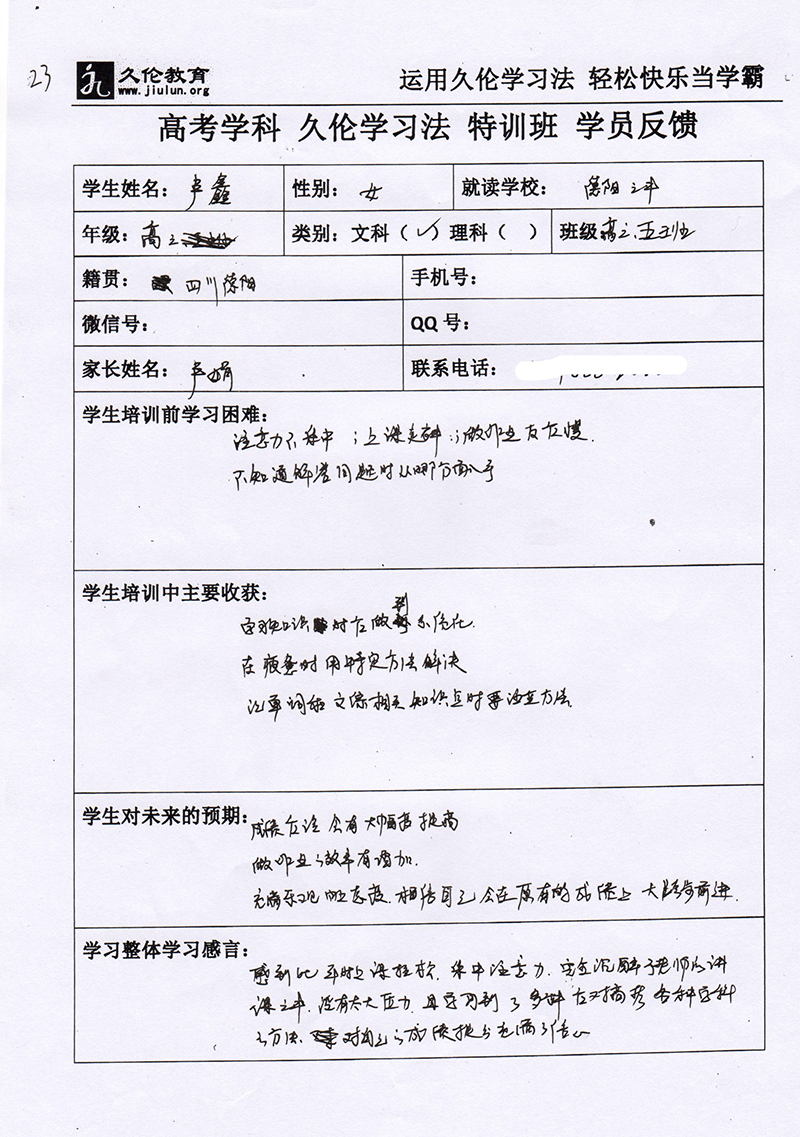 23
久伦教育
www.jiulun.org
运用久伦学习法 轻松快乐当学霸
高考学科 久伦学习法 特训班 学员反馈
学生姓名：卢鑫 性别：女 就读学校：德阳之
年级：高三 类别：文科（√）理科（ ） 班级 高三、五班
籍贯： 四川德阳 手机号：
微信号： QQ 号：
家长姓名：卢娟 联系电话：
学生培训前学习困难：
注意力不集中；上课走神；做作业反应慢。
不知道解答问题时从哪方面入手
学生培训中主要收获：
学习知识时应做到系统化
在疲惫时用特定方法解决
记单词和文综相关知识点时要注意方法
学生对未来的预期：
成绩应该会有大幅度提高
做作业的效率有增加
充满乐观的态度，相信自己会在原有的成绩上大踏步前进。
学习整体学习感言：
感到比平时上课轻松，集中注意力，完全沉醉于老师的讲
课之中，没有太大压力，且学习到了多种应对高考各种学科
的方法，对自己的成绩提高充满了信心